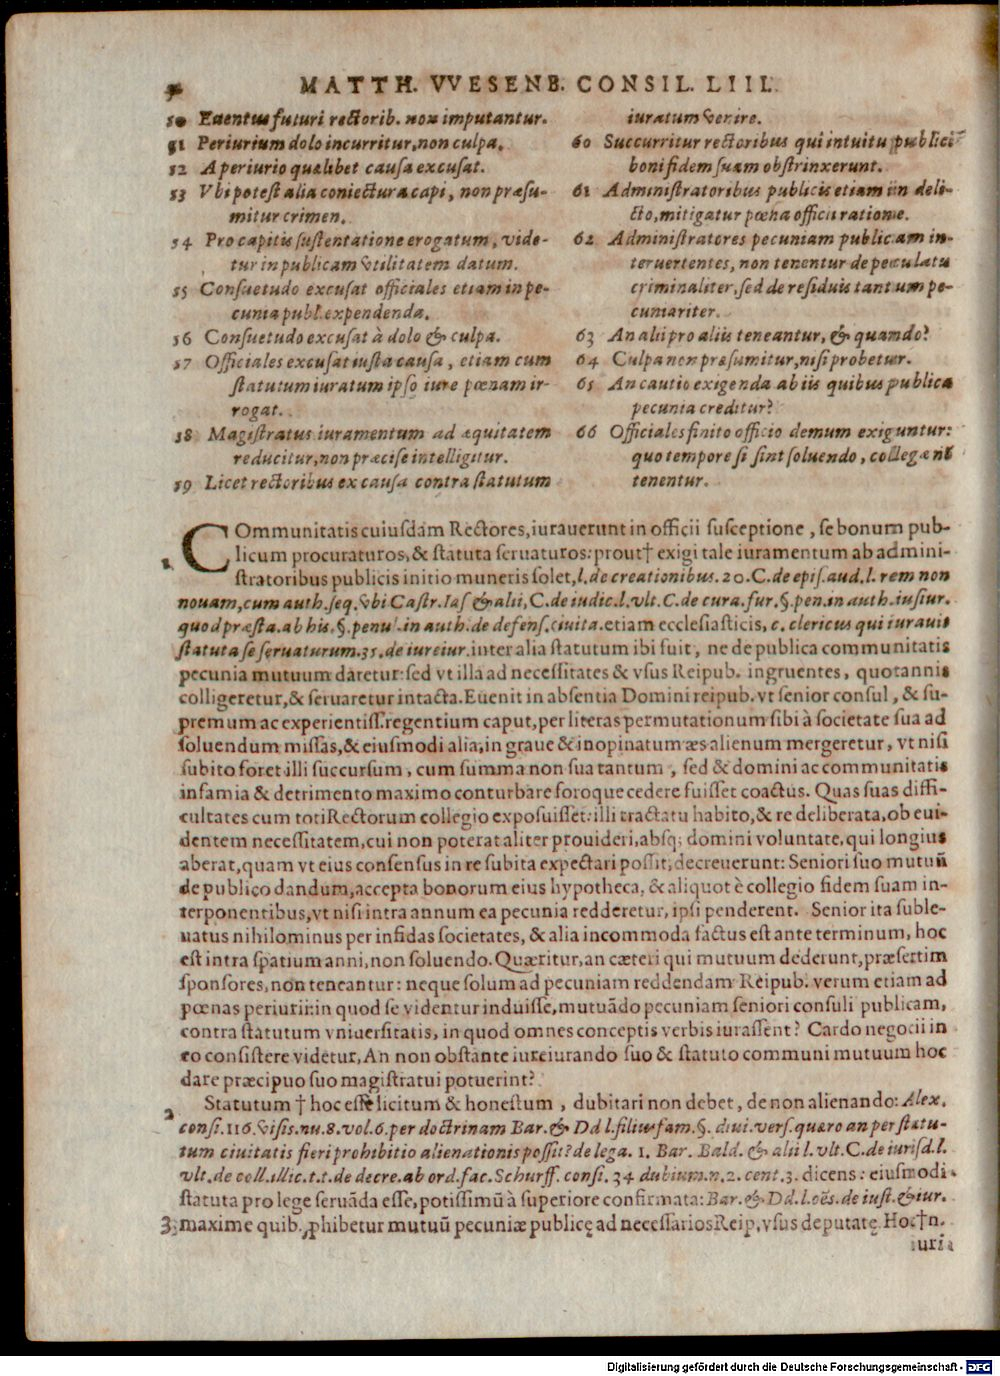 MATTH. VVESENB. CONSIL. LIII.
50 Euentus futuri rectorib. non imputantur.
51 Periurium dolo incurritur, non culpa.
52 A periurio quælibet causa excusat.
53 Vbi potest alia coniectura capi, non præsu-
mitur crimen.
54 Pro capitis sustentatione erogatum, vide-
tur in publicam vtilitatem datum.
55 Consuetudo excusat officiales etiam in pe-
cunia publ. expendenda.
56 Consuetudo excusat à dolo & culpa.
57 Officiales excusat iusta causa, etiam cum
statutum iuratum ipso iure pœnam ir-
rogat.
58 Magistratus iuramentum ad æquitatem
reducitur, non præcise intelligitur.
59 Licet rectoribus ex causa contra statutum
iuratum venire.
60 Succurritur rectoribus qui intuitu publici
boni fidem suam obstrinxerunt.
61 Administratoribus publicis etiam in deli-
cto, mitigatur pœna officii ratione.
62 Administratores pecuniam publicam in-
teruertentes, non tenentur de peculatu
criminaliter, sed de residuis tantum pe-
cuniariter.
63 An alii pro aliis teneantur, & quando?
64 Culpa non præsumitur, nisi probetur.
65 An cautio exigenda ab iis quibus publica
pecunia creditur?
66 Officiales finito officio demum exiguntur:
quo tempore si sint soluendo, collegæ nõ
tenentur.
COmmunitatis cuiusdam Rectores, iurauerunt in officii susceptione, se bonum pub-
1. licum procuraturos, & statuta seruaturos: prout† exigi tale iuramentum ab admini-
stratoribus publicis initio muneris solet, l. de creationibus. 20. C. de epis. aud. l. rem non
nouam, cum auth. seq. vbi Castr. Ias. & alii, C. de iudic. l. vlt. C. de cura. fur. §. pen. in auth. iusiur.
quod præsta. ab his. §. penu. in auth. de defens. ciuita. etiam ecclesiasticis, c. clericus qui iurauit
statuta se seruaturum. 35. de iureiur. inter alia statutum ibi fuit, ne de publica communitatis
pecunia mutuum daretur: sed vt illa ad necessitates & vsus Reipub. ingruentes, quotannis
colligeretur, & seruaretur intacta. Euenit in absentia Domini reipub. vt senior consul, & su-
premum ac experientiss. regentium caput, per literas permutationum sibi à societate sua ad
soluendum missas, & eiusmodi alia, in graue & inopinatum æs alienum mergeretur, vt nisi
subito foret illi succursum, cum summa non sua tantum, sed & domini ac communitatis
infamia & detrimento maximo conturbare foroque cedere fuisset coactus. Quas suas diffi-
cultates cum toti Rectorum collegio exposuisset: illi tractatu habito, & re deliberata, ob eui-
dentem necessitatem, cui non poterat aliter prouideri, absq; domini voluntate, qui longius
aberat, quam vt eius consensus in re subita expectari possit, decreuerunt: Seniori suo mutuũ
de publico dandum, accepta bonorum eius hypotheca, & aliquot è collegio fidem suam in-
terponentibus, vt nisi intra annum ea pecunia redderetur, ipsi penderent. Senior ita suble-
uatus nihilominus per infidas societates, & alia incommoda factus est ante terminum, hoc
est intra spatium anni, non soluendo. Quæritur, an cæteri qui mutuum dederunt, præsertim
sponsores, non teneantur: neque solum ad pecuniam reddendam Reipub. verum etiam ad
pœnas periurii: in quod se videntur induisse, mutuãdo pecuniam seniori consuli publicam,
contra statutum vniuersitatis, in quod omnes conceptis verbis iurassent? Cardo negocii in
eo consistere videtur, An non obstante iureiurando suo & statuto communi mutuum hoc
dare præcipuo suo magistratui potuerint?
2 Statutum † hoc esse licitum & honestum, dubitari non debet, de non alienando: Alex.
consi. 116. visis. nu. 8. vol. 6. per doctrinam Bar. & Dd l. filius fam. §. diui. vers. quæro an per statu-
tum ciuitatis fieri prohibitio alienationis possit? de lega. 1. Bar. Bald. & alii l. vlt. C. de iurisd. l.
vlt. de coll. illic. t. t. de decre. ab ord. fac. Schurff. consi. 34 dubium. n. 2. cent. 3. dicens: eiusmodi
statuta pro lege seruãda esse, potissimũ à superiore confirmata: Bar. & Dd. l. oẽs. de iust. & iur.
3. maxime quib. ꝓhibetur mutuũ pecuniæ publicę ad necessarios Reip, vsus deputatę. Hoc† n.
iuri
Digitalisierung gefördert durch die Deutsche Forschungsgemeinschaft - DFG